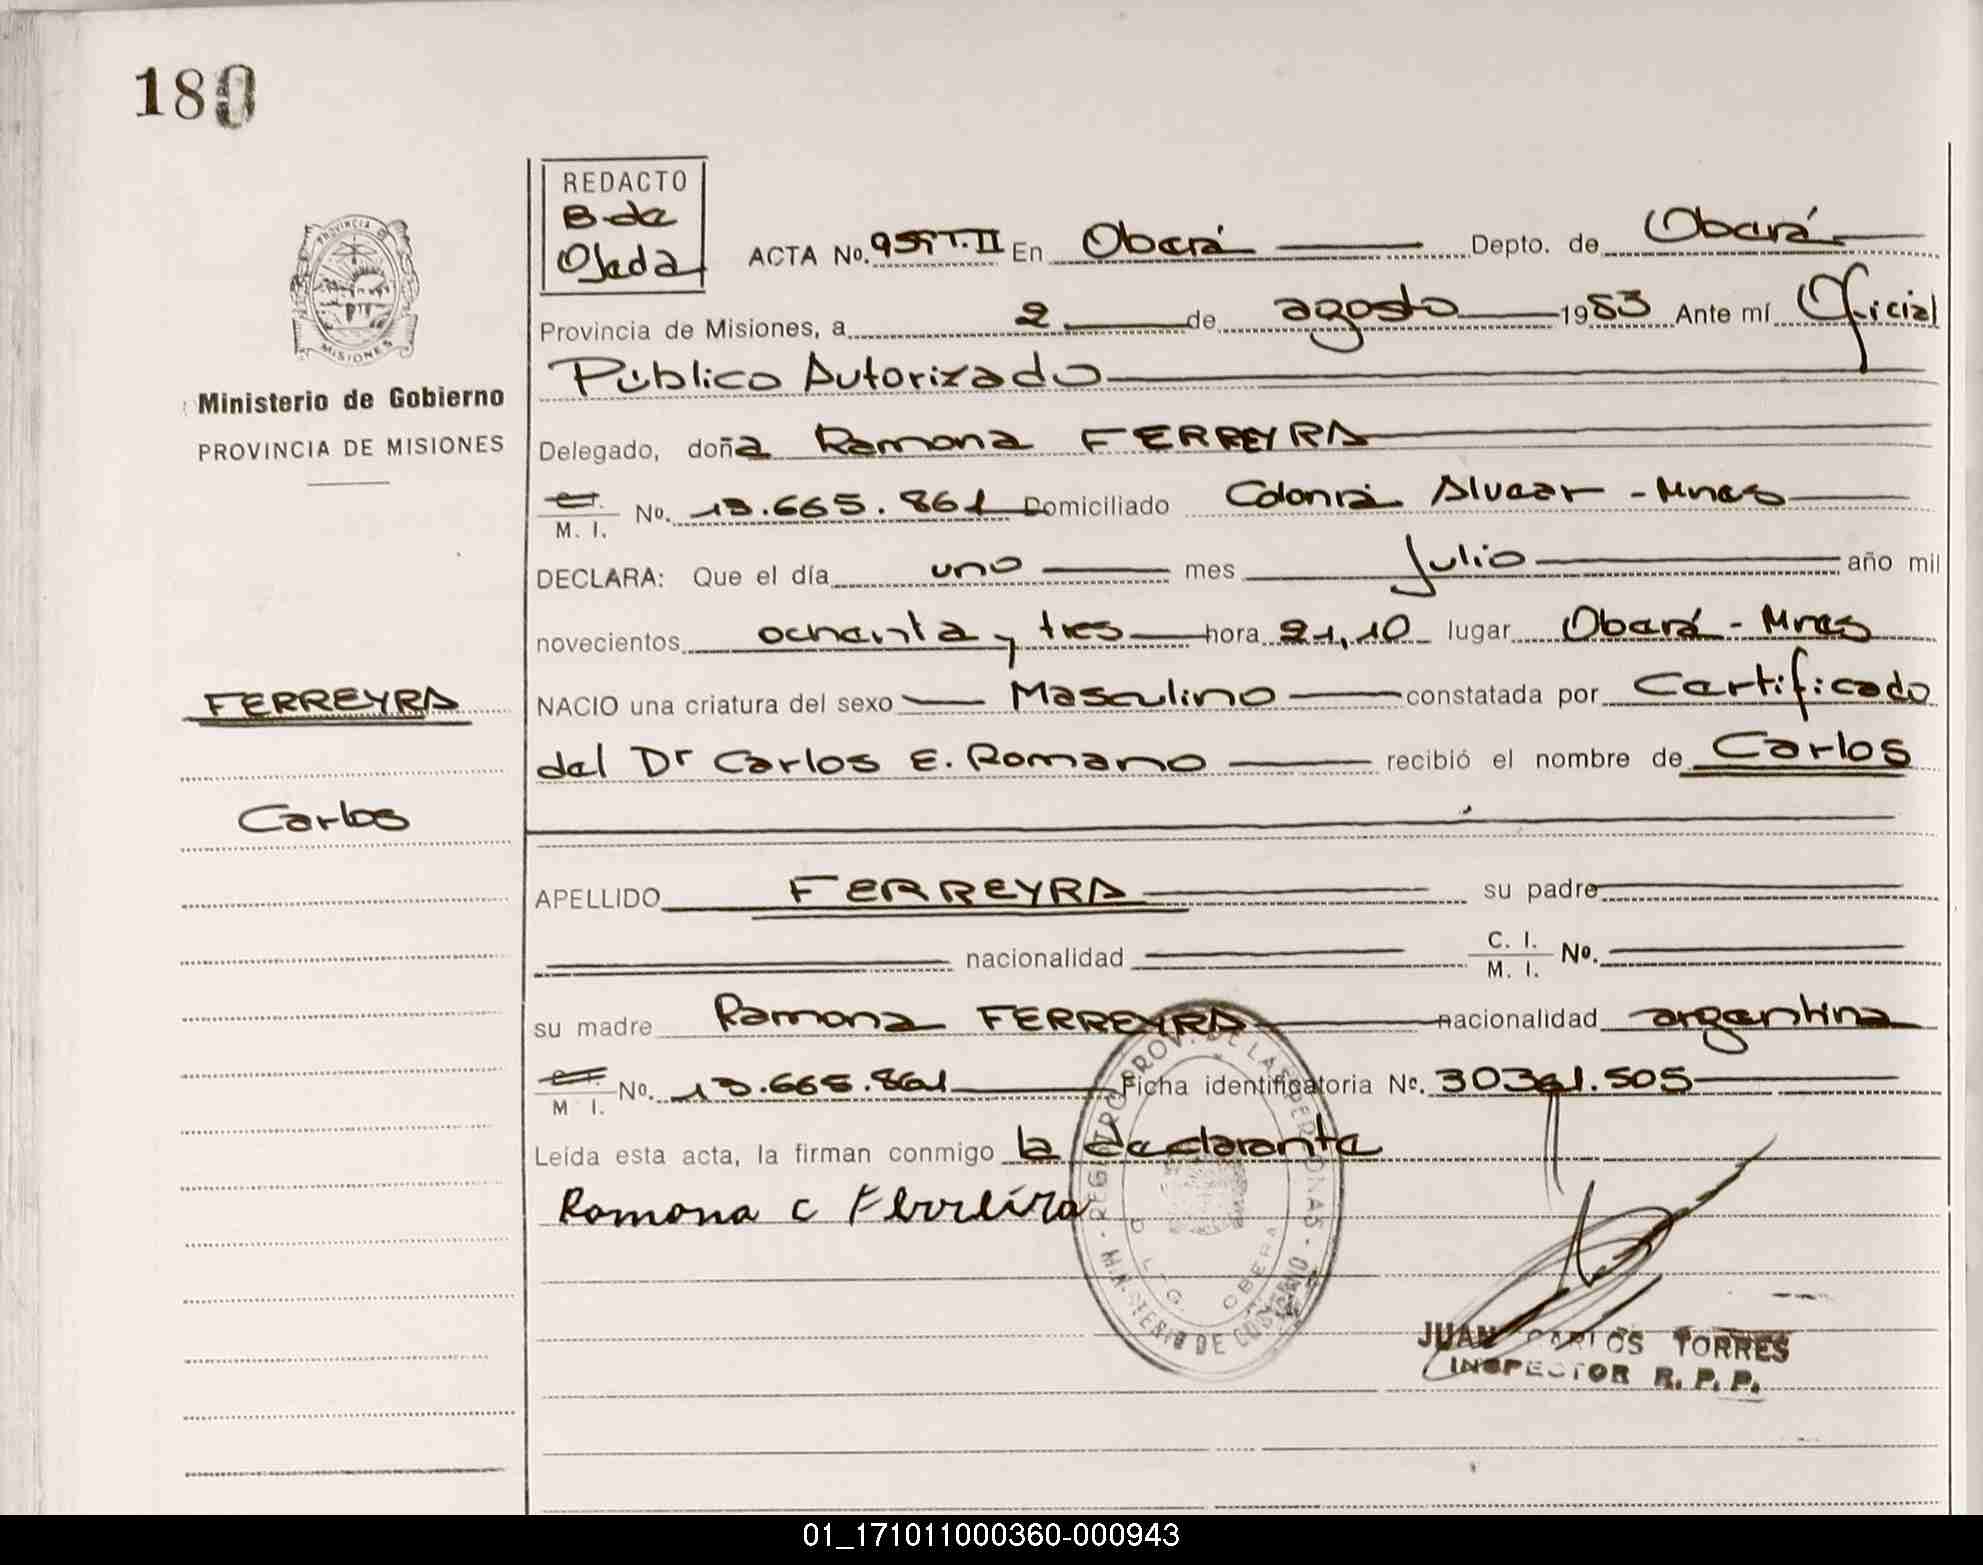 180
REDACTO
B. de
Ojeda
PROVINCIA DE
MISIONES
Ministerio de Gobierno
PROVINCIA DE MISIONES
ACTA No. T.II En Oberá Depto. de Oberá
Provincia de Misiones, a 2 de agosto 1983 Ante mí Oficial
Público Autorizado
Delegado, doña Ramona FERREYRA
C. I.
M. I. No. 13.665.861 Domiciliado Colonia Alvear - Mnes
DECLARA: Que el día uno mes Julio año mil
novecientos ochenta y tres hora 21,10 lugar Oberá - Mnes
FERREYRA
NACIO una criatura del sexo Masculino constatada por Certificado
del Dr Carlos E. Romano recibió el nombre de Carlos
Carlos
APELLIDO FERREYRA su padre
nacionalidad C. I. M. I. No.
su madre Ramona FERREYRA nacionalidad argentina
M I. No. 13.665.861 Ficha identificatoria No. 505
Leída esta acta, la firman conmigo la declarante
Ramona C Ferreira
REGISTRO PROV. DE LAS PERSONAS - MINISTERIO DE GOBIERNO
OBERA
JUAN CARLOS TORRES
INSPECTOR R. P. P.
01_171011000360-000943